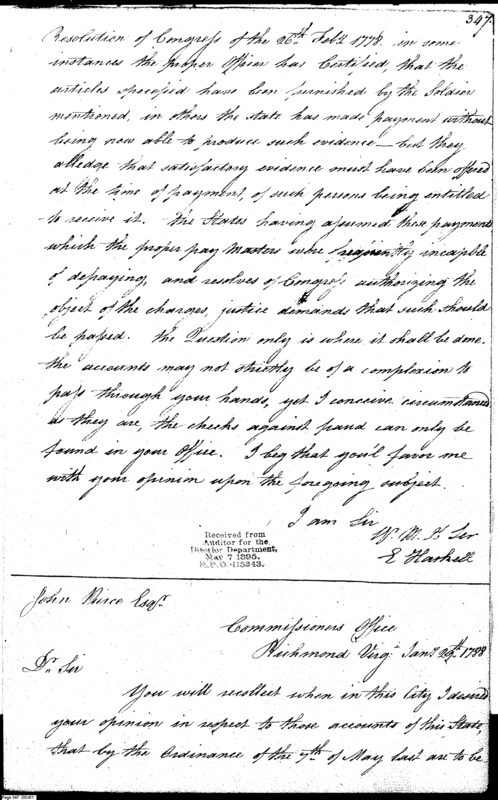 347
Resolution of Congress of the 26th Feby 1778. in some
instances the proper Officer has Certified, that the
articles specified have been furnished by the Soldier
mentioned, in others the state has made payment without
being now able to produce such evidence — but they
alledge that satisfactory evidence must have been offered
at the time of payment, of such persons being entitled
to receive it. The States having assumed these payments
which the proper pay Masters were frequently incapable
of defraying, and resolves of Congress authorizing the
object of the charges, justice demands that such should
be passed. The Question only is where it shall be done.
the accounts may not strictly be of a complexion to
pass through your hands, yet I conceive circumstanced
as they are, the checks against fraud can only be
found in your Office. I beg that you'l favor me
with your opinion upon the foregoing subject.
I am Sir
Yr. M. H Ser
E Haskell
Received from
Auditor for the
Interior Department,
May 7 1895.
R.P.O. 115343.
John Pierce Esqr.
Commissioners Office
Richmond Virga. Jany 29th. 1788
Dr. Sir
You will recollect when in this City I desired
your opinion in respect to those accounts of this State,
that by the Ordinance of the 7th of May last are to be
Page 347